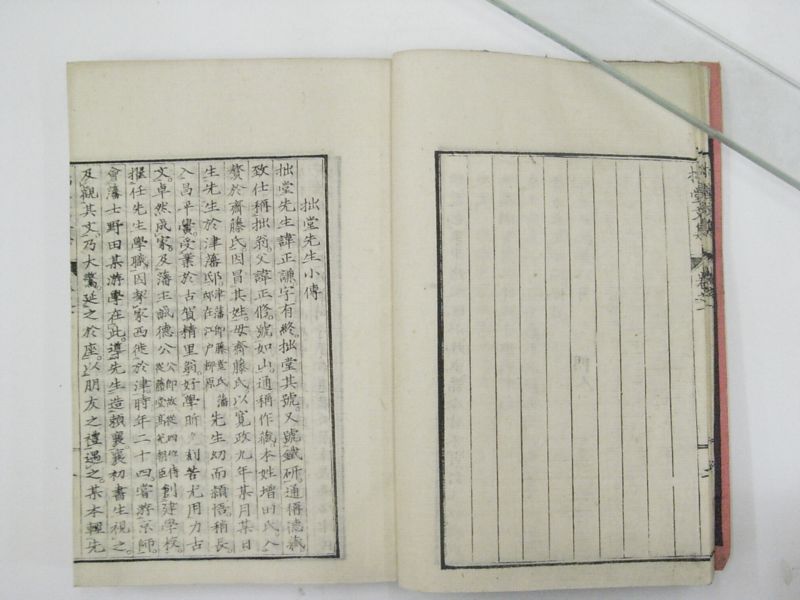 拙堂先生小傳
拙堂先生諱正謙字有終拙堂其號又號鐵研通稱德藏
致仕稱拙翁父諱正修號如山通稱作藏本姓增田氏入
贅於齋藤氏因冒其姓母齋藤氏以寬政九年某月某日
生先生於津藩邸津藩即藤堂氏藩邸在江戶柳原先生幼而頴悟稍長
入昌平黌受業於古賀精里翁好學刻苦尤用力古
文卓然成家及藩主誠德公創建學校
擢任先生學職因挈家西徙於津時年二十四嘗游京師
會藩士野田某游學在此導先生造賴襄襄初書生視之
及觀其文乃大驚延之於座以朋友之禮遇之某本輕先